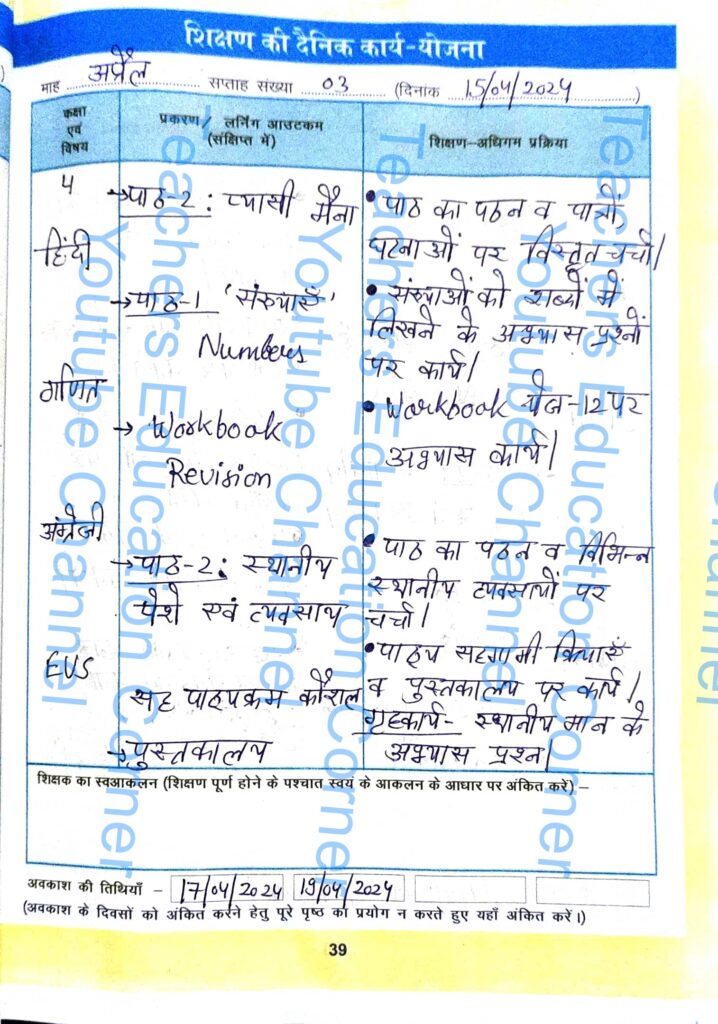 शिक्षण की दैनिक कार्य-योजना
माह अप्रैल सप्ताह संख्या 03 (दिनांक 15/04/2024)
कक्षा एवं विषय
प्रकरण/ लर्निंग आउटकम (संक्षिप्त में)
शिक्षण–अधिगम प्रक्रिया
→पाठ-2 : प्यासी मैना
• पाठ का पठन व पात्रों,
घटनाओं पर विस्तृत चर्चा।
हिंदी
→पाठ-1 'संख्याएँ'
Numbers
• संख्याओं को शब्दों में
लिखने के अभ्यास प्रश्नों
पर कार्य।
गणित
→ Workbook
Revision
• Workbook पेज-12 पर
अभ्यास कार्य।
अंग्रेजी
→पाठ-2: स्थानीय
पेशे एवं व्यवसाय
• पाठ का पठन व विभिन्न
स्थानीय व्यवसायों पर
चर्चा।
EVS
सह पाठ्यक्रम कौशल
→पुस्तकालय
• पाठ्य सहगामी क्रियाएँ
व पुस्तकालय पर कार्य।
गृहकार्य- स्थानीय मान के
अभ्यास प्रश्न।
शिक्षक का स्वआकलन (शिक्षण पूर्ण होने के पश्चात स्वयं के आकलन के आधार पर अंकित करें) –
अवकाश की तिथियाँ – 17/04/2024 19/04/2024
(अवकाश के दिवसों को अंकित करने हेतु पूरे पृष्ठ का प्रयोग न करते हुए यहाँ अंकित करें।)
39
Teachers Education Corner
Youtube Channel
Teachers Education Corner
Youtube Channel
Teachers Education Corner
Youtube Channel